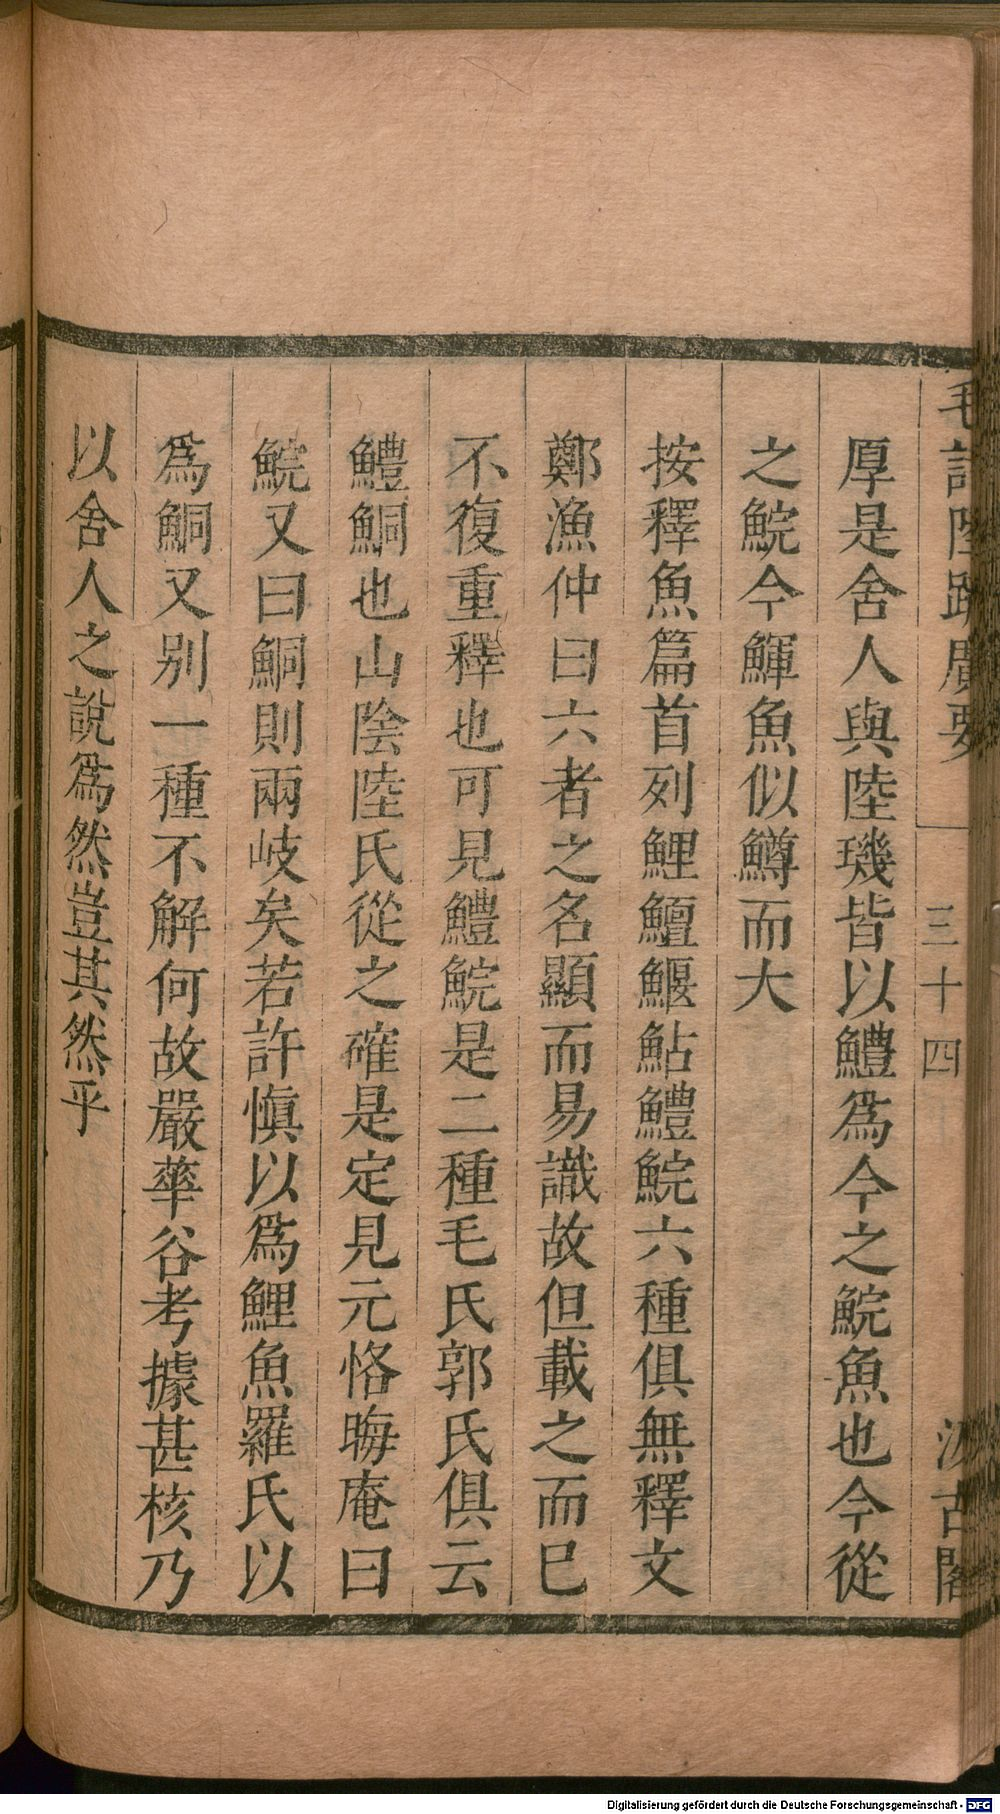 毛詩陸疏廣要
三十四
汲古閣
厚是舍人與陸璣皆以鱧爲今之鯇魚也今從
之鯇今鯶魚似鱒而大
按釋魚篇首列鯉鱣鰋鮎鱧鯇六種俱無釋文
鄭漁仲曰六者之名顯而易識故但載之而已
不復重釋也可見鱧鯇是二種毛氏郭氏俱云
鱧鮦也山陰陸氏從之確是定見元恪晦庵曰
鯇又曰鮦則兩岐矣若許愼以爲鯉魚羅氏以
爲鮦又别一種不解何故嚴華谷考據甚核乃
以舍人之說爲然豈其然乎
Digitalisierung gefördert durch die Deutsche Forschungsgemeinschaft - DFG